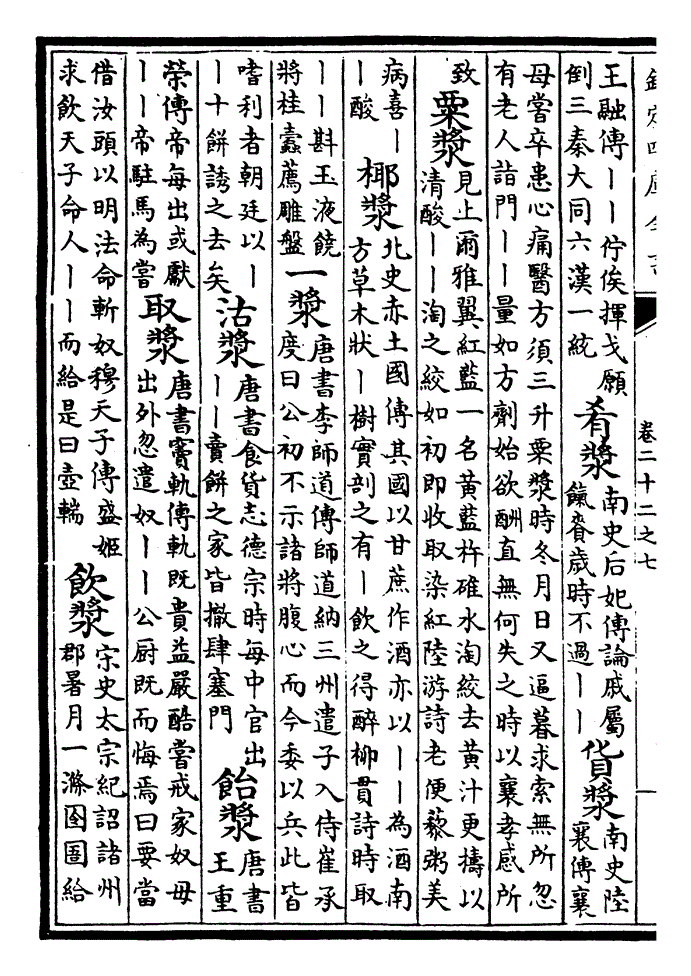 欽定四庫全書
卷二十二之七
王融傳丨丨佇俟揮戈願
倒三秦大同六漢一統
肴漿
南史后妃傳論戚屬
餼賚歲時不過丨丨
貨漿
南史陸
襄傳襄
母嘗卒患心痛醫方須三升粟漿時冬月日又逼暮求索無所忽
有老人詣門丨丨量如方劑始欲酬直無何失之時以襄孝感所
致
粟漿
見上爾雅翼紅藍一名黃藍杵碓水淘絞去黃汁更擣以
清酸丨丨淘之絞如初即收取染紅陸游詩老便藜粥美
病喜丨
丨酸
椰漿
北史赤土國傳其國以甘蔗作酒亦以丨丨為酒南
方草木狀丨樹實剖之有丨飲之得醉柳貫詩時取
丨丨斟玉液饒
將桂蠹薦雕盤
一漿
唐書李師道傳師道納三州遣子入侍崔承
度曰公初不示諸將腹心而今委以兵此皆
嗜利者朝廷以丨
丨十餅誘之去矣
沽漿
唐書食貨志德宗時每中官出
丨丨賣餅之家皆撤肆塞門
飴漿
唐書
王重
榮傳帝每出或獻
丨丨帝駐馬為嘗
取漿
唐書竇軌傳軌既貴益嚴酷嘗戒家奴毋
出外忽遣奴丨丨公厨既而悔焉曰要當
借汝頭以明法命斬奴穆天子傳盛姬
求飲天子命人丨丨而給是曰壺輲
飲漿
宋史太宗紀詔諸州
郡暑月一滌囹圄給